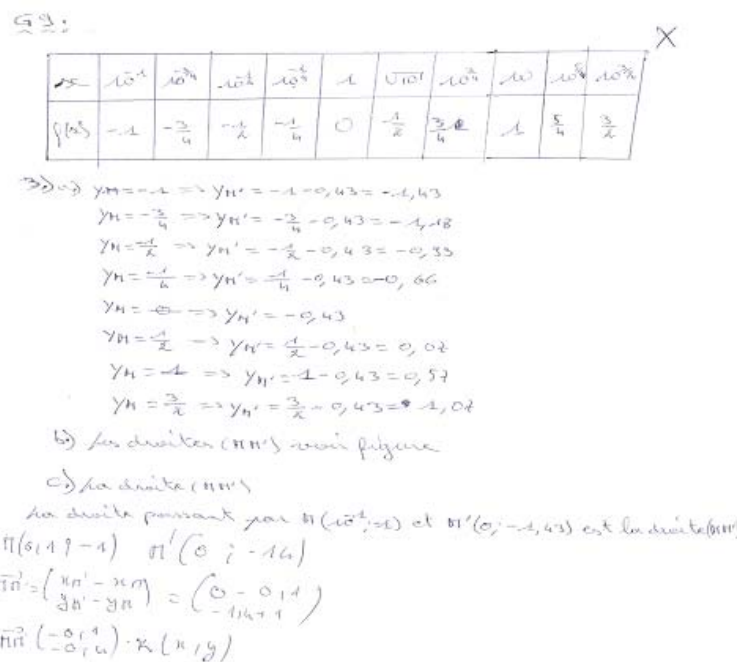 G9:
X
x 10^-1 10^-3/4 10^-1/2 10^-1/4 1 √10 10^3/4 10 10^5/4 10^3/2
f(x) -1 -3/4 -1/2 -1/4 0 1/2 3/4 1 5/4 3/2
3.) a) yM = -1 => yM' = -1-0,43 = -1,43
yM = -3/4 => yM' = -3/4 -0,43 = -1,18
yM = -1/2 => yM' = -1/2 -0,43 = -0,93
yM = -1/4 => yM' = -1/4 -0,43 = -0,66
yM = 0 => yM' = -0,43
yM = 1/2 => yM' = 1/2 -0,43 = 0,07
yM = 1 => yM' = 1-0,43 = 0,57
yM = 3/2 => yM' = 3/2 -0,43 = 1,07
b.) Les droites (MM') voir figure
c.) La droite (MM')
La droite passant par M(10^-1;-1) et M'(0;-1,43) est la droite (MM')
M(0,1 ; -1) M'(0 ; -1,4)
MM' = (xM' - xM yM' - yM) = (0 - 0,1 -1,4+1)
MM' (-0,1 -0,4) (x,y)